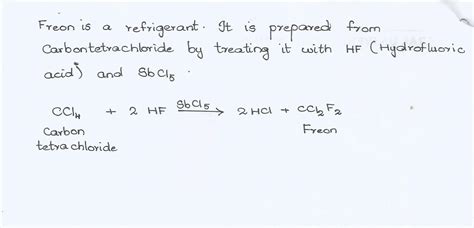 Freon is a refrigerant. It is prepared from
Carbontetrachloride by treating it with HF (Hydrofluoric
acid) and SbCl₅.
CCl₄ + 2 HF SbCl₅→ 2 HCl + CCl₂F₂
Carbon Freon
tetrachloride